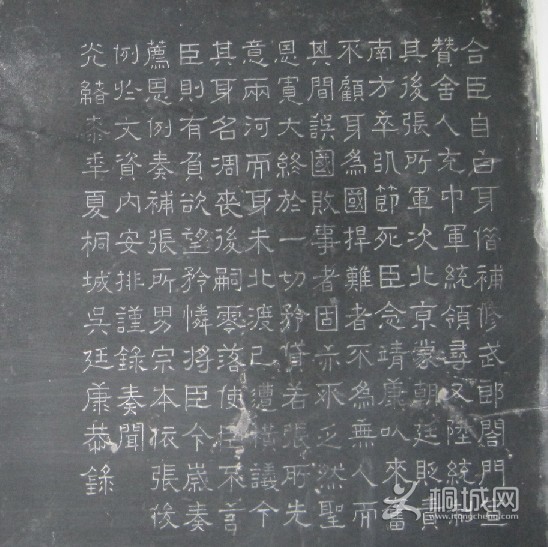 合臣自白身借補修武郎閤門宣
贊舍人充中軍統領尋又陞統制
其後張所軍次北京蒙朝廷貶責
南方卒以節死臣念靖康以來奮
不顧耳爲國捍難者不為無人而
其間誤國敗事者固亦不乏然聖
恩寬大終於一切矜貸若張所先
意兩河而身未北渡已遭橫議今
其身名凋喪後嗣零落使臣不言
臣則有負欲望矜憐將臣今歲奏
薦恩例奏補張所男宗本依張後
例於文資內安排謹錄奏聞
光緒桼年夏桐城吳廷康恭錄
桐城网
itongcheng.com